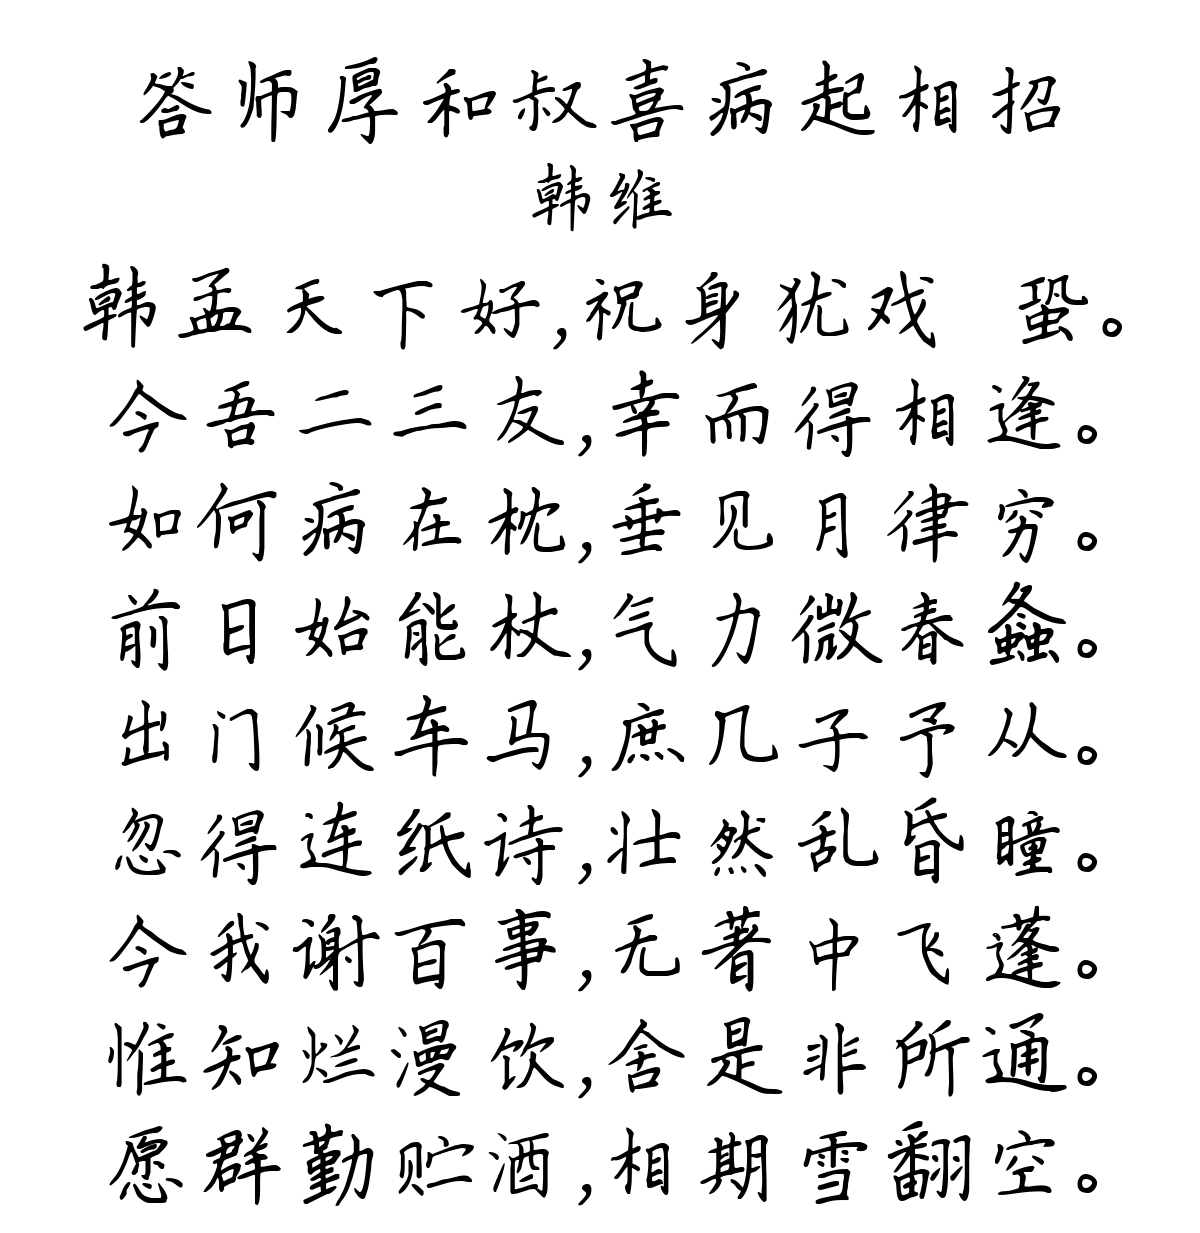 答师厚和叔喜病起相招
韩维
韩孟天下好,祝身犹戏 蛩。
今吾二三友,幸而得相逢。
如何病在枕,垂见月律穷。
前日始能杖,气力微春螽。
出门候车马,庶几子予从。
忽得连纸诗,壮然乱昏瞳。
今我谢百事,无著中飞蓬。
惟知烂漫饮,舍是非所通。
愿群勤贮酒,相期雪翻空。